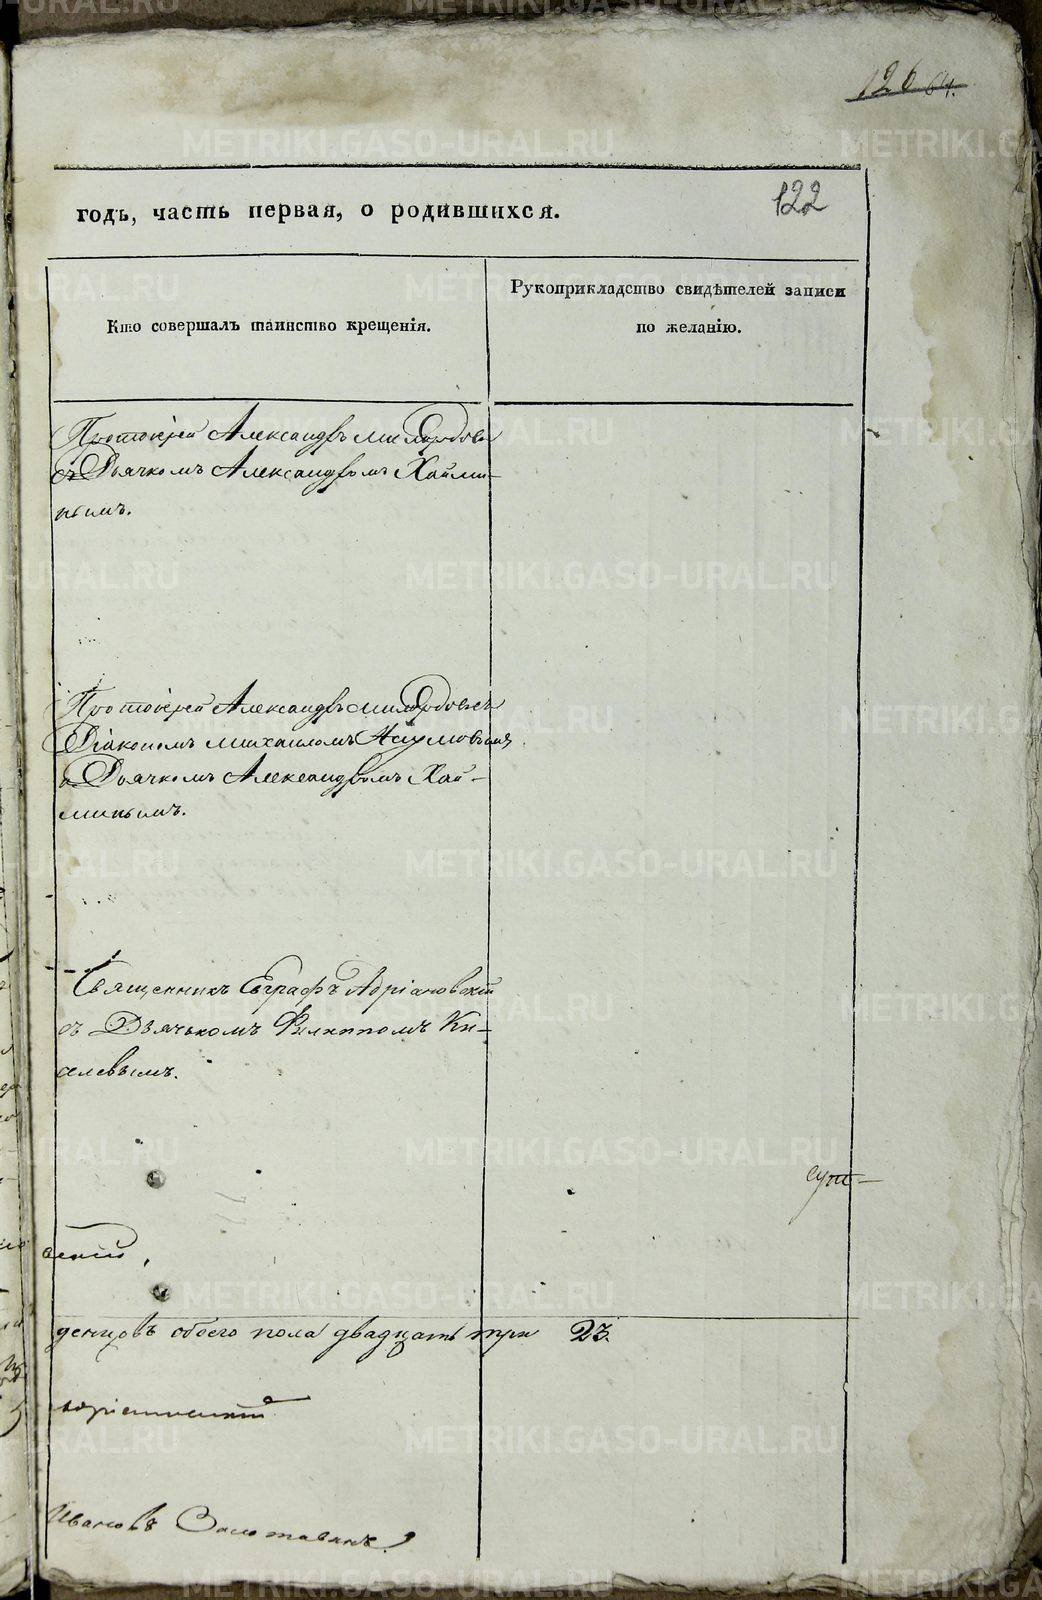 126 64.
122
годъ, часть первая, о родившихся.
Кто совершалъ таинство крещенія.
Рукоприкладство свидѣтелей записи
по желанію.
Протоіерей Александръ Милордовъ
съ Дьячкомъ Александромъ Хайми-
нымъ.
Протоіерей Александръ Милордовъ съ
Діакономъ Михаиломъ Наумовымъ
и Дьячкомъ Александромъ Хай-
минымъ.
Священникъ Евграфъ Адріановскій
съ Дьячькомъ
алевымъ.
денцовъ обоего пола двадцать три 23.
Ивановъ
METRIKI.GASO-URAL.RU